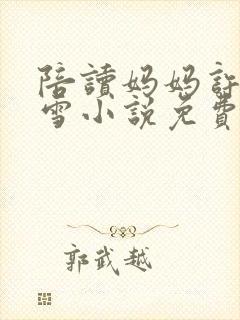 陪讀媽媽許
雪小說免費
郭武越